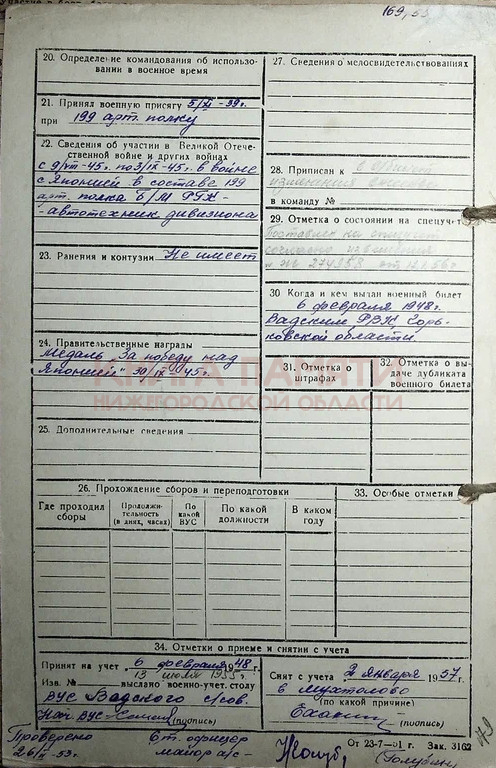 169,53
20. Определение командования об использо-
вании в военное время
21. Принял военную присягу 5/XI-39г.
при 199 арт. полку
22. Сведения об участии в Великой Отече-
ственной войне и других войнах
с 9/VIII-45г. по 3/IX-45г. в войне
с Японией в составе 199
арт. полка б/м РГК -
- автотехник дивизиона
23. Ранения и контузии Не имеет
24. Правительственные награды
Медаль "За победу над
Японией" 30/IX-45г.
25. Дополнительные сведения
27. Сведения о медосвидетельствованиях
28. Приписан к
в команду №
29. Отметка о состоянии на спецучете
Поставлен на
согласно
30 Когда и кем выдан военный билет
6 февраля 1948г.
Вадским РВК Горь-
ковской области.
31. Отметка о
штрафах
32. Отметка о вы-
даче дубликата
военного билета
КНИГА ПАМЯТИ
НИЖЕГОРОДСКОЙ ОБЛАСТИ
26. Прохождение сборов и переподготовки
Где проходил
сборы
Продолжи-
тельность
(в днях, часах)
По
какой
ВУС
По какой
должности
В каком
году
33. Особые отметки
34. Отметки о приеме и снятии с учета
Принят на учет 6 февраля 1948
13 июля
Изв. № выслано военно-учет. столу
ВУС Вадского с/сов.
Нач. ВУС- (подпись)
Снят с учета 2 января 1957
в Мухтолово
(по какой причине)
(подпись)
Проверено
53г.
Ст. офицер
майор а/с-
От 23-7-51 г. Зак. 3162